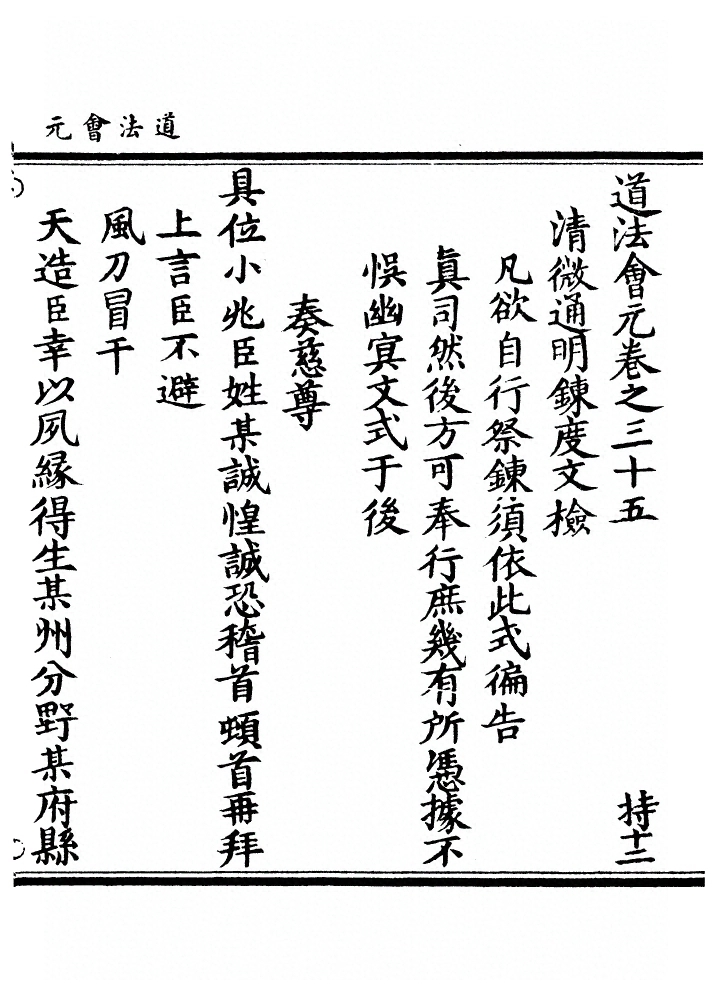 道法會元
道法會元卷之三十五
持十二
清微通明鍊度文檢
凡欲自行祭鍊須依此式徧告
眞司然後方可奉行庶幾有所憑據不
悞幽㝠文式于後
奏慈尊
具位小兆臣姓某誠惶誠恐稽首頓首再拜
上言臣不避
風刀冒干
天造臣幸以夙緣得生某州分野某府縣